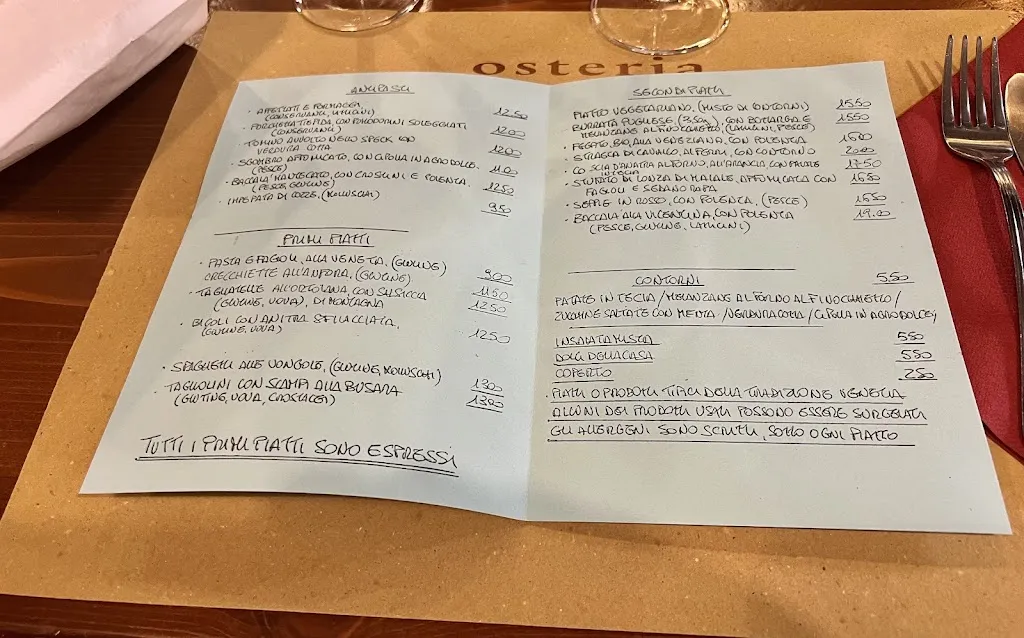 osteria
ANTIPASTI
· AFFETTATI E FORMAGGI, 12.50
(CONSERVANTI, LATTICINI)
· PORCHETTA TIEPIDA, CON POMODORINI SOLEGGIATI 12.00
(CONSERVANTI)
· TOMINO AVVOLTO NELLO SPECK CON 12.00
VERDURA COTTA
· SGOMBRO AFFUMICATO, CON CIPOLLA IN AGRODOLCE. 11.00
(PESCE)
· BACCALA' MANTECATO, CON CROSTINI E POLENTA. 12.50
(PESCE, GLUTINE)
· IMPEPATA DI COZZE, (MOLLUSCHI) 9.50
PRIMI PIATTI
· PASTA E FAGIOLI, ALLA VENETA, (GLUTINE) 9.00
ORECCHIETTE ALL'ANFORA, (GLUTINE) 11.50
· TAGLIATELLE ALL'ORTOLANA, CON SALSICCIA 12.50
(GLUTINE, UOVA), DI MONTAGNA
· BIGOLI CON ANITRA SFILACCIATA, 12.50
(GLUTINE, UOVA)
· SPAGHETTI ALLE VONGOLE, (GLUTINE, MOLLUSCHI) 13.00
TAGLIOLINI CON SCAMPI ALLA BUSARA 13.00
(GLUTINE, UOVA, CROSTACEI)
TUTTI I PRIMI PIATTI SONO ESPRESSI
SECONDI PIATTI
PIATTO VEGETARIANO, (MISTO DI CONTORNI) 15.50
BURRATA PUGLIESE, (350g), CON BOTTARGA E 15.50
MELANZANE AL FINOCCHIETTO, (LATTICINI, PESCE)
· FEGATO, BIO, ALLA VENEZIANA, CON POLENTA
· STRACCA DI CAVALLO, AI FERRI, CON CONTORNO 20.00
· COSCIA D'ANATRA AL FORNO, ALL'ARANCIA CON PATATE 17.50
IN TECIA
· STUFATO DI LONZA DI MAIALE, AFFUMICATA CON 16.50
FAGIOLI E SEDANO RAPA
· SEPPIE IN ROSSO, CON POLENTA, (PESCE) 15.50
· BACCALÀ ALLA VICENTINA, CON POLENTA 19.00
(PESCE, GLUTINE, LATTICINI)
CONTORNI 5.50
PATATE IN TECIA / MELANZANE AL FORNO AL FINOCCHIETTO /
ZUCCHINE SALTATE CON MENTA / VERDURA COTTA / CIPOLLA IN AGRODOLCE /
INSALATA MISTA 5.50
DOLCI DELLA CASA 5.50
COPERTO 2.50
· PIATTI O PRODOTTI TIPICI DELLA TRADIZIONE VENETA
ALCUNI DEI PRODOTTI USATI POSSONO ESSERE SURGELATI
GLI ALLERGENI SONO SCRITTI, SOTTO OGNI PIATTO